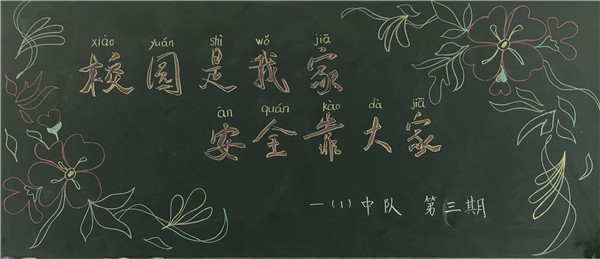 xiào yuán shì wǒ jiā
校园是我家
ān quán kào dà jiā
安全靠大家
一(1)中队 第三期